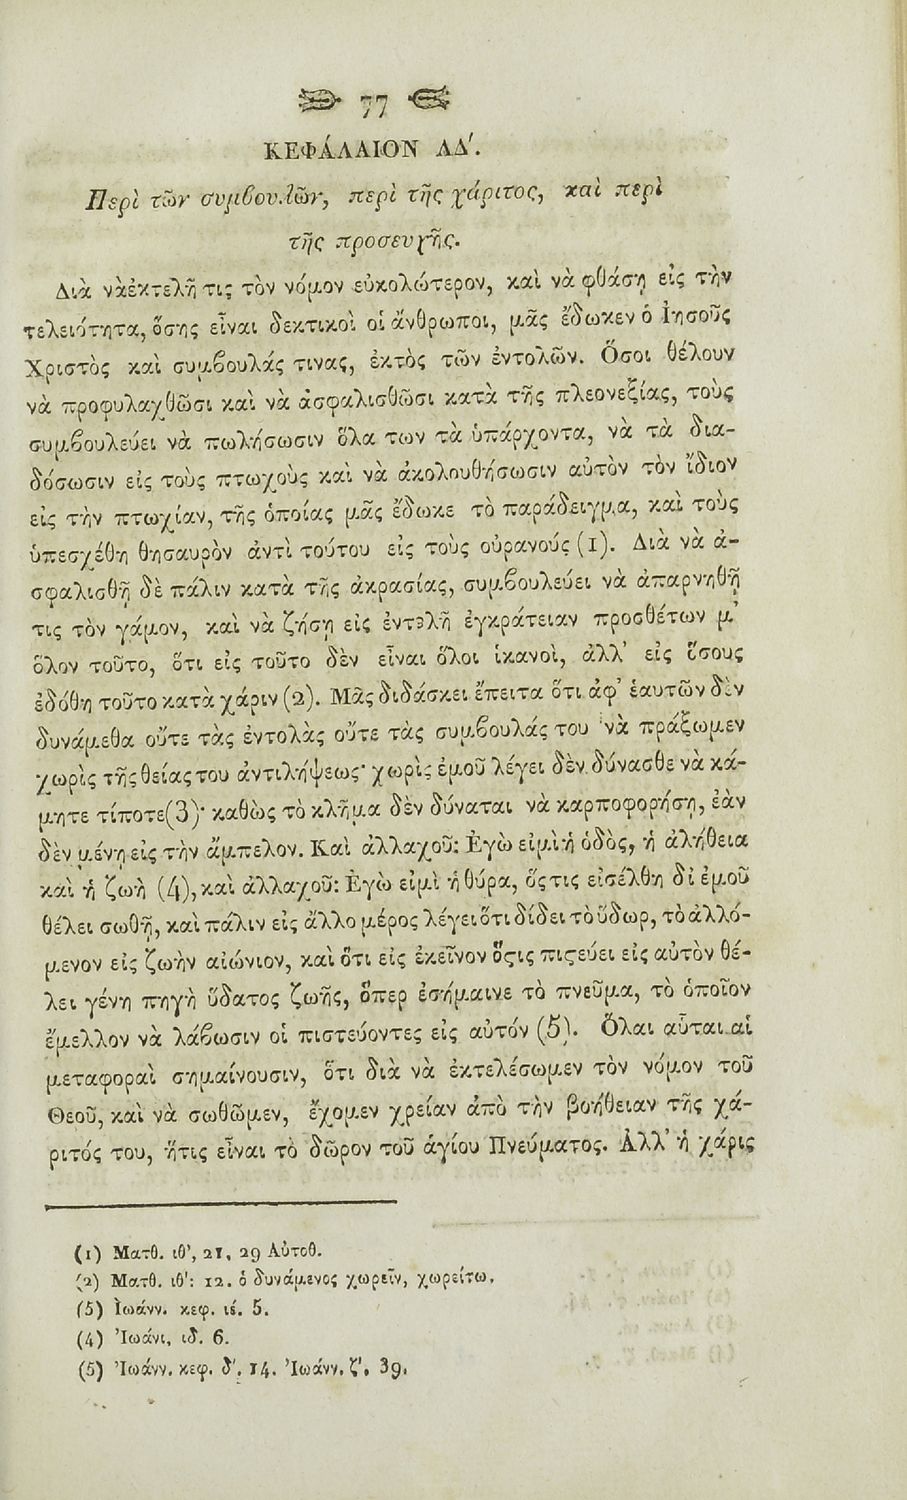 77
ΚΕΦΑΛΑΙΟΝ ΛΔ'.
Περὶ τῶν συμβουλῶν, περὶ τῆς χάριτος, καὶ περὶ
τῆς προσευχῆς.
Διὰ νὰἐκτελῇ τις τὸν νόμον εὐκολώτερον, καὶ νὰ φθάσῃ εἰς τὴν
τελειότητα, ὅσης εἶναι δεκτικοὶ οἱ ἄνθρωποι, μᾶς ἔδωκεν ὁ Ἰησοῦς
Χριστὸς καὶ συμβουλάς τινας, ἐκτὸς τῶν ἐντολῶν. Ὅσοι θέλουν
νὰ προφυλαχθῶσι καὶ νὰ ἀσφαλισθῶσι κατὰ τῆς πλεονεξίας, τοὺς
συμβουλεύει νὰ πωλήσωσιν ὅλα των τὰ ὑπάρχοντα, νὰ τὰ δια-
δόσωσιν εἰς τοὺς πτωχοὺς καὶ νὰ ἀκολουθήσωσιν αὐτὸν τὸν ἴδιον
εἰς τὴν πτωχίαν, τῆς ὁποίας μᾶς ἔδωκε τὸ παράδειγμα, καὶ τοὺς
ὑπεσχέθη θησαυρὸν ἀντὶ τούτου εἰς τοὺς οὐρανούς (1). Διὰ νὰ ἀ-
σφαλισθῇ δὲ πάλιν κατὰ τῆς ἀκρασίας, συμβουλεύει νὰ ἀπαρνηθῇ
τις τὸν γάμον, καὶ νὰ ζήσῃ εἰς ἐντελῆ ἐγκράτειαν προσθέτων μ'
ὅλον τοῦτο, ὅτι εἰς τοῦτο δὲν εἶναι ὅλοι ἱκανοὶ, ἀλλ' εἰς ὅσους
ἐδόθη τοῦτο κατὰ χάριν (2). Μᾶς διδάσκει ἔπειτα ὅτι ἀφ' ἑαυτῶν δὲν
δυνάμεθα οὔτε τὰς ἐντολὰς οὔτε τὰς συμβουλάς του νὰ πράξωμεν
χωρὶς τῆς θείας του ἀντιλήψεως· χωρὶς ἐμοῦ λέγει δὲν δύνασθε νὰ κά-
μητε τίποτε(3)· καθὼς τὸ κλῆμα δὲν δύναται νὰ καρποφορήσῃ, ἐὰν
δὲν μένῃ εἰς τὴν ἄμπελον. Καὶ ἀλλαχοῦ: Ἐγὼ εἰμὶ ἡ ὁδὸς, ἡ ἀλήθεια
καὶ ἡ ζωὴ (4), καὶ ἀλλαχοῦ: Ἐγὼ εἰμὶ ἡ θύρα, ὅςτις εἰσέλθῃ δι' ἐμοῦ
θέλει σωθῇ, καὶ πάλιν εἰς ἄλλο μέρος λέγει ὅτι δίδει τὸ ὕδωρ, τὸ ἀλλό-
μενον εἰς ζωὴν αἰώνιον, καὶ ὅτι εἰς ἐκεῖνον ὅϛις πιϛεύει εἰς αὐτὸν θέ-
λει γένῃ πηγὴ ὕδατος ζωῆς, ὅπερ ἐσήμαινε τὸ πνεῦμα, τὸ ὁποῖον
ἔμελλον νὰ λάβωσιν οἱ πιστεύοντες εἰς αὐτόν (5). Ὅλαι αὗται αἱ
μεταφοραὶ σημαίνουσιν, ὅτι διὰ νὰ ἐκτελέσωμεν τὸν νόμον τοῦ
Θεοῦ, καὶ νὰ σωθῶμεν, ἔχομεν χρείαν ἀπὸ τὴν βοήθειαν τῆς χά-
ριτός του, ἥτις εἶναι τὸ δῶρον τοῦ ἁγίου Πνεύματος. Ἀλλ' ἡ χάρις
(1) Ματθ. ιθ', 21, 29 Αὐτοθ.
(2) Ματθ. ιθ': 12. ὁ δυνάμενος χωρεῖν, χωρείτω.
(5) Ἰωάνν. κεφ. ιέ. 5.
(4) Ἰωάνι, ιδ. 6.
(5) Ἰωάνν. κεφ. δ'. 14. Ἰωάνν. ζ', 39.